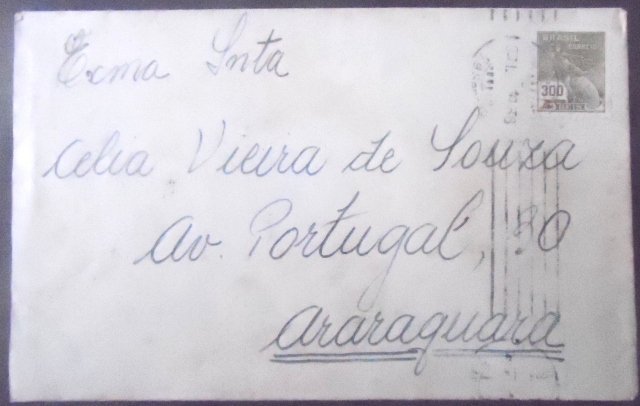 Exma Snta
Celia Vieira de Souza
Av. Portugal, 80
Araraquara
BRASIL
CORREIO
300